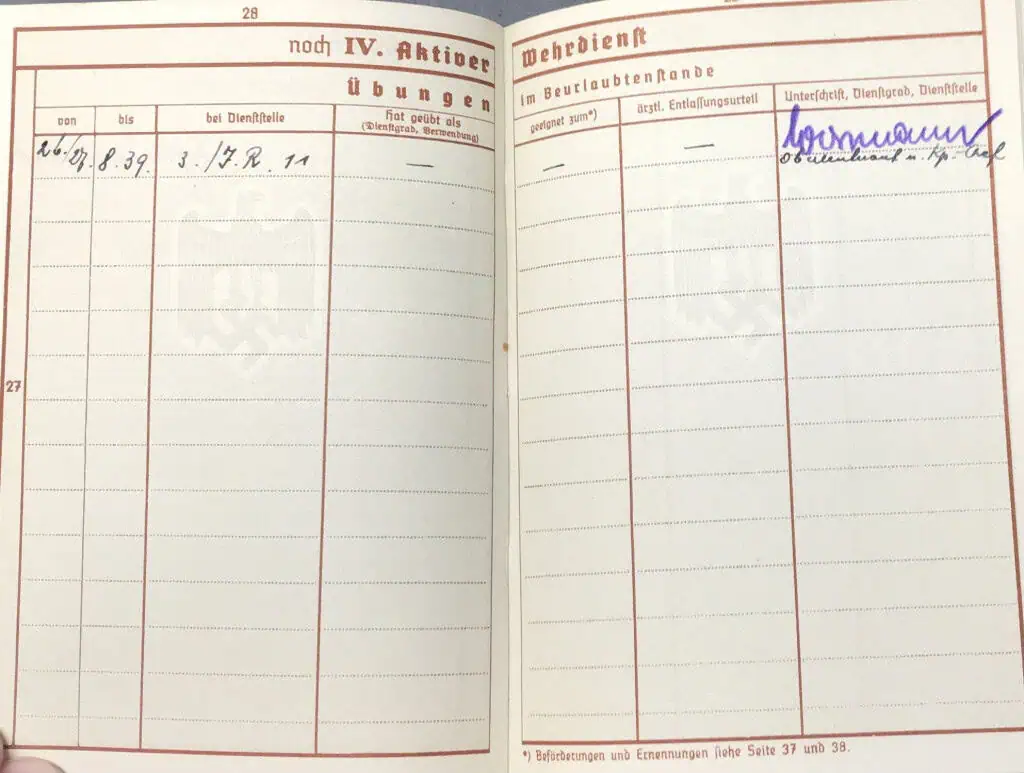 28
noch IV. Aktiver Wehrdienst
Übungen im Beurlaubtenstande
von
bis
bei Dienststelle
Hat geübt als
(Dienstgrad, Verwendung)
geeignet zum*)
ärztl. Entlassungsurteil
Unterschrift, Dienstgrad, Dienststelle
26./27. 8. 39. 3./J.R. 11 — — —
Oberleutnant u. Kp.-Chef
27
*) Beförderungen und Ernennungen siehe Seite 37 und 38.